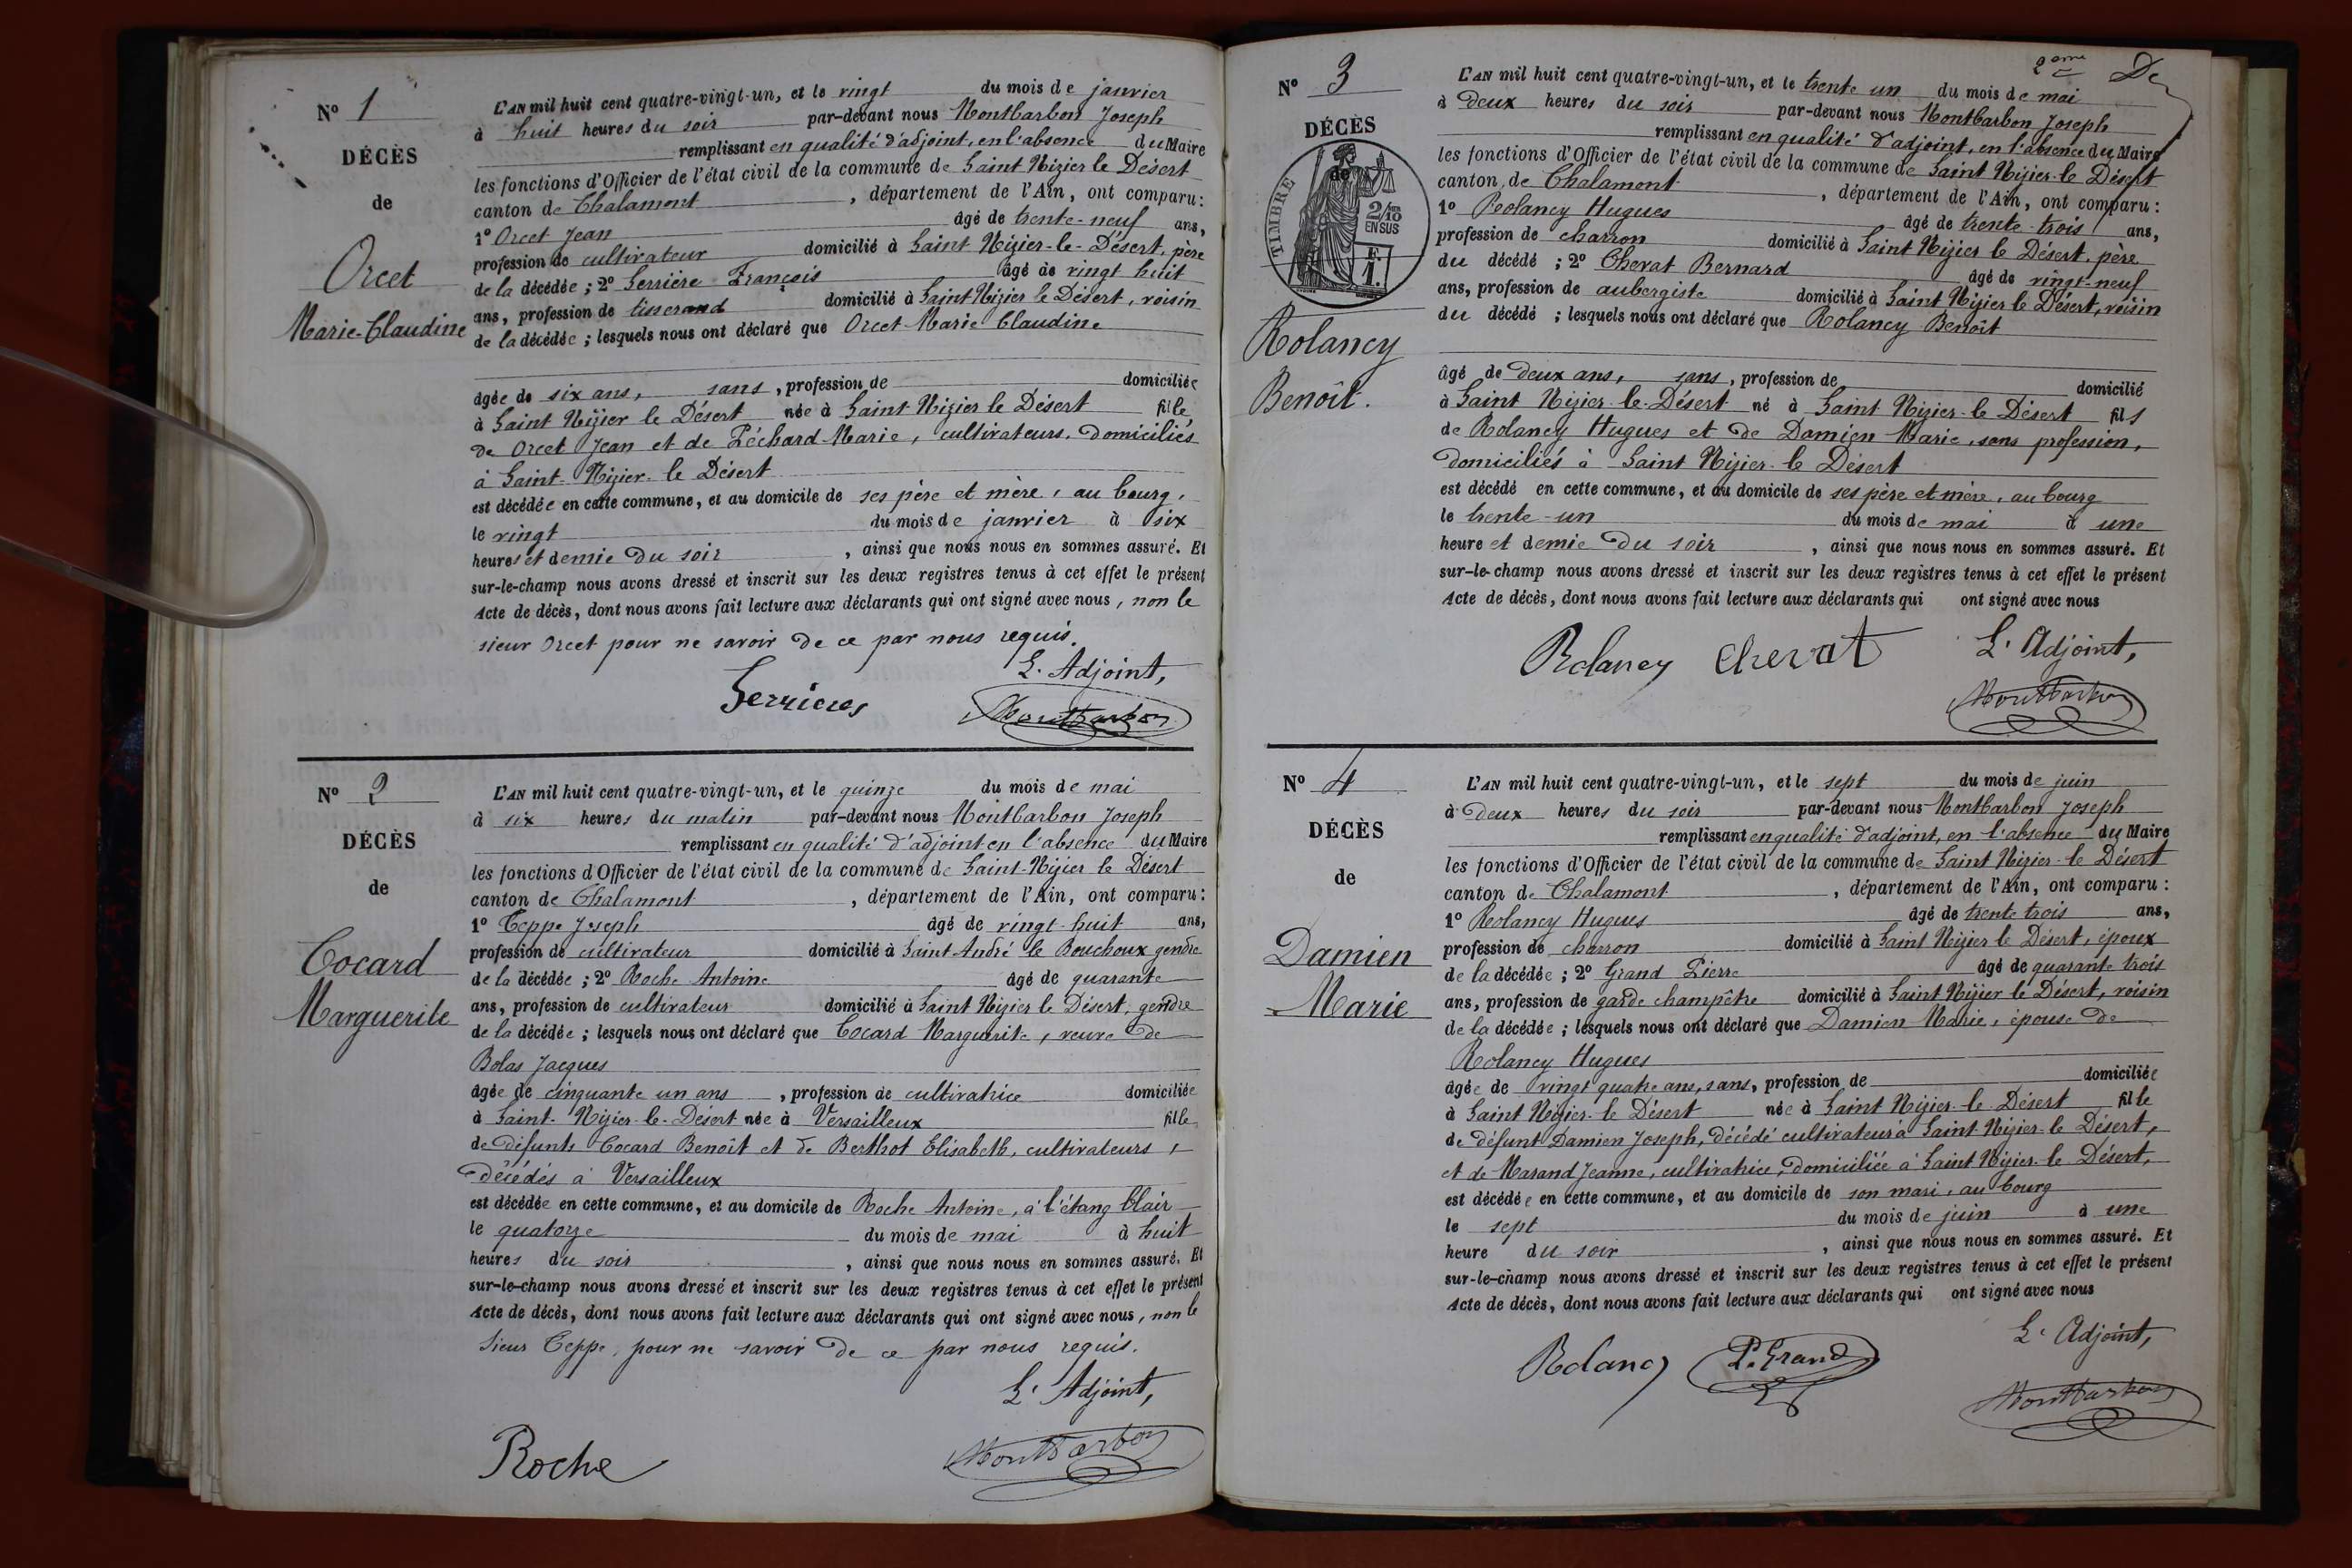 N° 1
DÉCÈS
de
Orcet
Marie-Claudine
L'AN mil huit cent quatre-vingt-un, et le vingt du mois de janvier
à huit heures du soir par-devant nous Montbarbon Joseph
remplissant en qualité d'adjoint, en l'absence du Maire
les fonctions d'Officier de l'état civil de la commune de Saint Nizier le Désert
canton de Chalamont, département de l'Ain, ont comparu :
1° Orcet Jean âgé de trente-neuf ans,
profession de cultivateur domicilié à Saint Nizier-le-Désert, père
de la décédée ; 2° Serrière François âgé de vingt huit
ans, profession de tisserand domicilié à Saint Nizier le Désert, voisin
de la décédée ; lesquels nous ont déclaré que Orcet Marie Claudine
âgée de six ans, sans, profession de domiciliée
à Saint Nizier le Désert née à Saint Nizier le Désert fille
de Orcet Jean et de Péchard Marie, cultivateurs, domiciliés
à Saint-Nizier-le Désert
est décédée en cette commune, et au domicile de ses père et mère, au bourg,
le vingt du mois de janvier à six
heures et demie du soir, ainsi que nous nous en sommes assuré. Et
sur-le-champ nous avons dressé et inscrit sur les deux registres tenus à cet effet le présent
Acte de décès, dont nous avons fait lecture aux déclarants qui ont signé avec nous, non le
sieur Orcet pour ne savoir de ce par nous requis.
L'Adjoint,
Serrieres Montbarbon
N° 2
DÉCÈS
de
Cocard
Marguerite
L'AN mil huit cent quatre-vingt-un, et le quinze du mois de mai
à six heures du matin par-devant nous Montbarbon Joseph
remplissant en qualité d'adjoint en l'absence du Maire
les fonctions d'Officier de l'état civil de la commune de Saint-Nizier le Désert
canton de Chalamont, département de l'Ain, ont comparu :
1° Teppe Joseph âgé de vingt-huit ans,
profession de cultivateur domicilié à Saint André le Bouchoux gendre
de la décédée ; 2° Roche Antoine âgé de quarante
ans, profession de cultivateur domicilié à Saint Nizier le Désert, gendre
de la décédée ; lesquels nous ont déclaré que Cocard Marguerite, veuve de
Bolas Jacques
âgée de cinquante un ans, profession de cultivatrice domiciliée
à Saint-Nizier-le-Désert née à Versailleux fille
de défunts Cocard Benoît et de Berthot Elisabeth, cultivateurs,
décédés à Versailleux
est décédée en cette commune, et au domicile de Roche Antoine, à l'étang Clair
le quatorze du mois de mai à huit
heures du soir, ainsi que nous nous en sommes assuré. Et
sur-le-champ nous avons dressé et inscrit sur les deux registres tenus à cet effet le présent
Acte de décès, dont nous avons fait lecture aux déclarants qui ont signé avec nous, non le
Sieur Teppe, pour ne savoir de ce par nous requis.
L'Adjoint,
Roche Montbarbon
2ème De
N° 3
DÉCÈS
de
TIMBRE
2/10
EN SUS
F.
1.
Rolancy
Benoît.
L'AN mil huit cent quatre-vingt-un, et le trente un du mois de mai
à deux heures du soir par-devant nous Montbarbon Joseph
remplissant en qualité d'adjoint, en l'absence du Maire
les fonctions d'Officier de l'état civil de la commune de Saint Nizier-le Désert
canton de Chalamont, département de l'Ain, ont comparu :
1° Rolancy Hugues âgé de trente-trois ans,
profession de charron domicilié à Saint Nizier le Désert, père
du décédé ; 2° Chevat Bernard âgé de vingt-neuf
ans, profession de aubergiste domicilié à Saint Nizier le Désert, voisin
du décédé ; lesquels nous ont déclaré que Rolancy Benoît
âgé de deux ans, sans, profession de domicilié
à Saint Nizier-le-Désert né à Saint Nizier-le Désert fils
de Rolancy Hugues et de Damien Marie, sans profession,
domiciliés à Saint Nizier-le Désert
est décédé en cette commune, et au domicile de ses père et mère, au bourg
le trente-un du mois de mai à une
heure et demie du soir, ainsi que nous nous en sommes assuré. Et
sur-le-champ nous avons dressé et inscrit sur les deux registres tenus à cet effet le présent
Acte de décès, dont nous avons fait lecture aux déclarants qui ont signé avec nous
Rolancy Chevat L'Adjoint,
Montbarbon
N° 4
DÉCÈS
de
Damien
Marie
L'AN mil huit cent quatre-vingt-un, et le sept du mois de juin
à deux heures du soir par-devant nous Montbarbon Joseph
remplissant en qualité d'adjoint, en l'absence du Maire
les fonctions d'Officier de l'état civil de la commune de Saint Nizier-le Désert
canton de Chalamont, département de l'Ain, ont comparu :
1° Rolancy Hugues âgé de trente trois ans,
profession de charron domicilié à Saint Nizier le Désert, époux
de la décédée ; 2° Grand Pierre âgé de quarante trois
ans, profession de garde champêtre domicilié à Saint Nizier le Désert, voisin
de la décédée ; lesquels nous ont déclaré que Damien Marie, épouse de
Rolancy Hugues
âgée de vingt quatre ans, sans, profession de domiciliée
à Saint Nizier-le Désert née à Saint Nizier-le Désert fille
de défunt Damien Joseph, décédé cultivateur à Saint-Nizier-le Désert,
et de Marand Jeanne, cultivatrice, domiciliée à Saint Nizier-le Désert,
est décédée en cette commune, et au domicile de son mari, au bourg
le sept du mois de juin à une
heure du soir, ainsi que nous nous en sommes assuré. Et
sur-le-champ nous avons dressé et inscrit sur les deux registres tenus à cet effet le présent
Acte de décès, dont nous avons fait lecture aux déclarants qui ont signé avec nous
L'Adjoint,
Rolancy P. Grand
Montbarbon